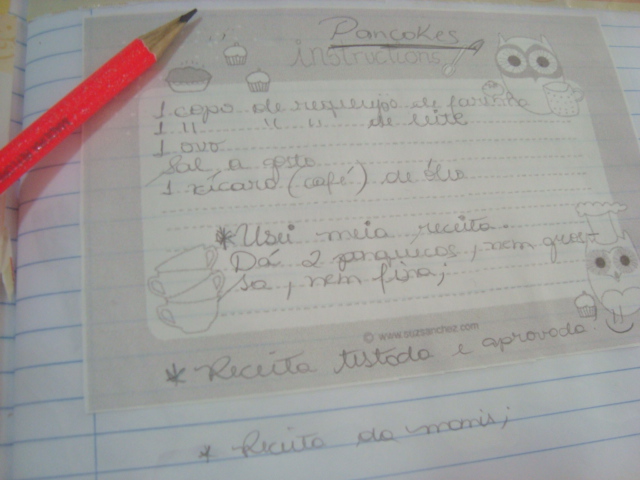 Pancakes
instructions
1 copo de requeijão de farinha
1 " " " de leite
1 ovo
Sal a gosto
1 xícara (café) de óleo
*Usei meia receita.
Dá 2 panquecas, nem gros-
sa, nem fina;
© www.suzisanchez.com
* Receita testada e aprovada.
* Receita da mamis;